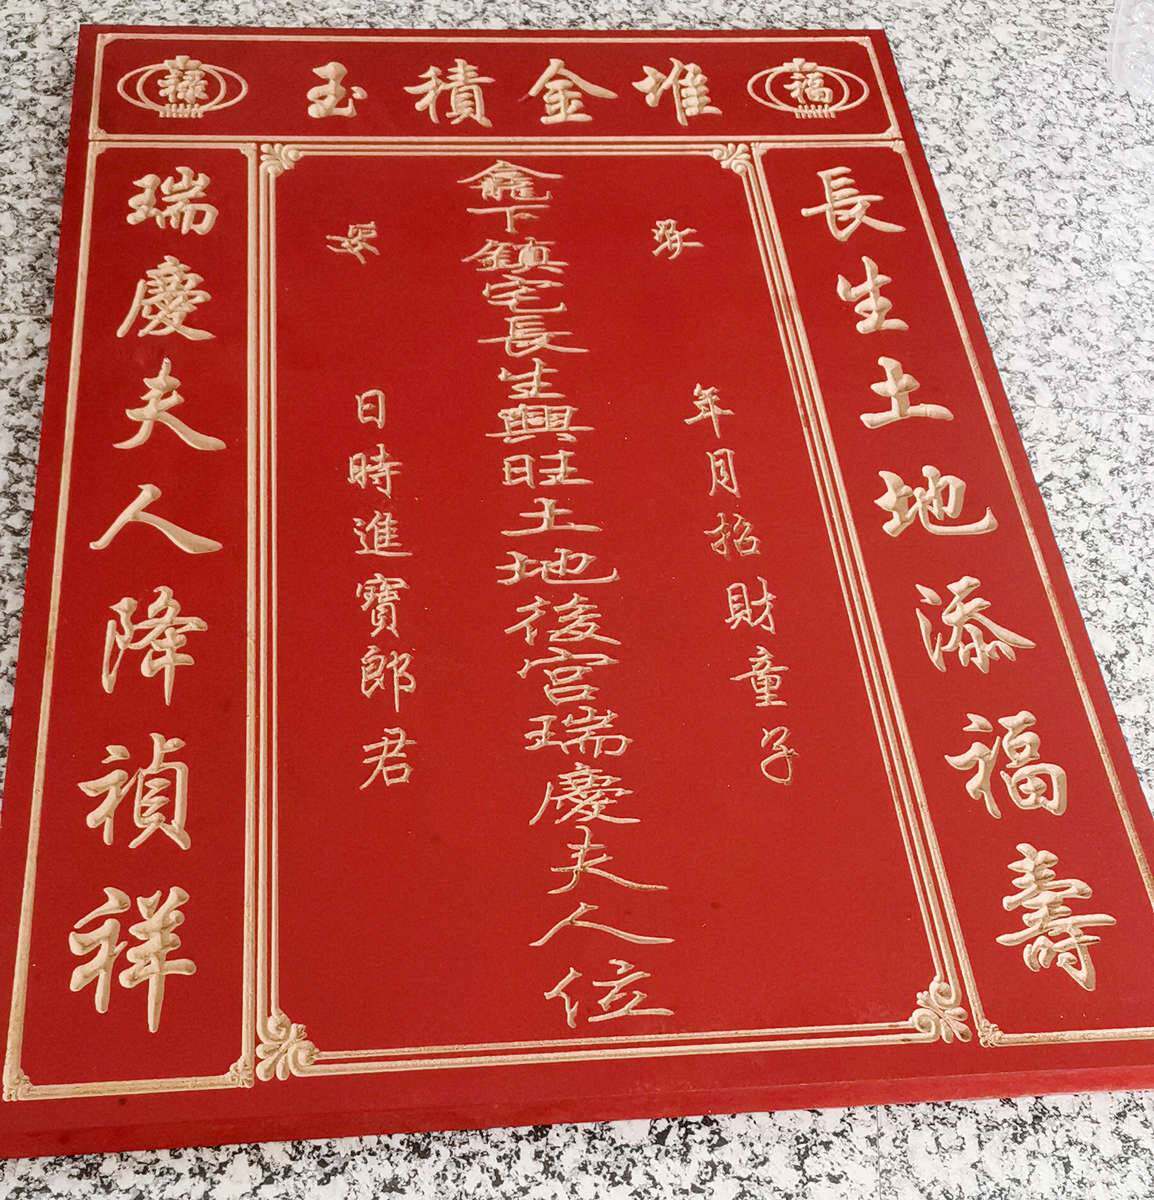 福
堆金積玉
祿
長生土地添福壽
年月招財童子
龕下鎮宅長生興旺土地後宮瑞慶夫人位
日時進寶郎君
瑞慶夫人降禎祥